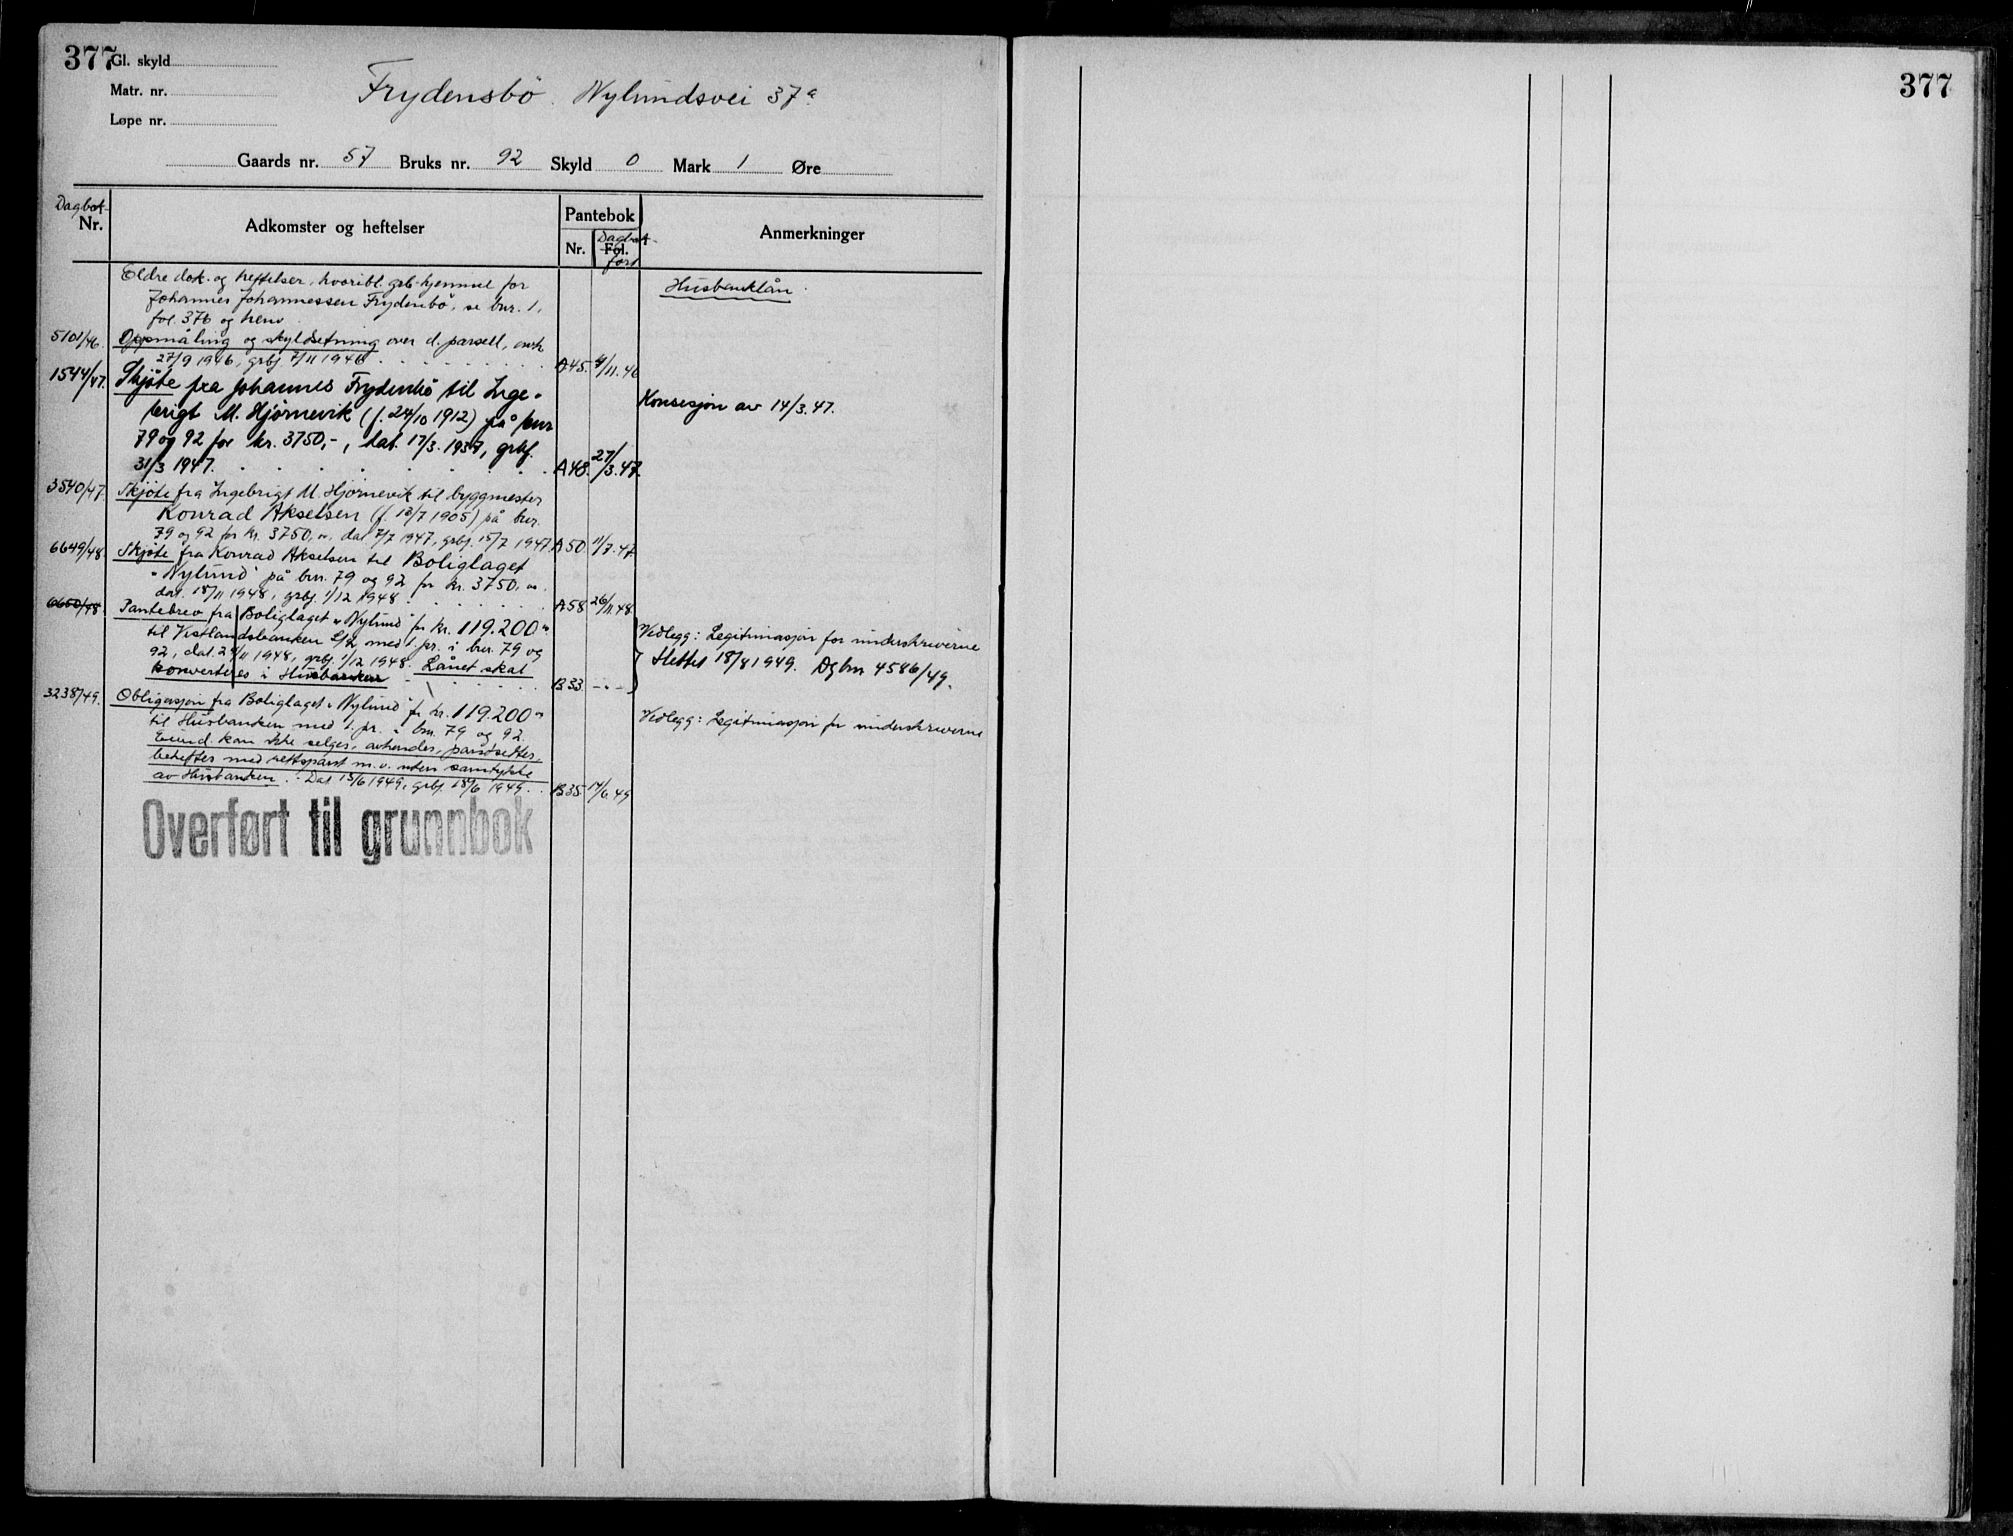 377
Gl. skyld
Matr. nr.
Løpe nr.
Frydensbö. Nylundsvei 37a
Gaards nr. 57 Bruks nr. 92 Skyld 0 Mark 1 Øre
Dagbok-
Nr.
Adkomster og heftelser
Pantebok
Nr.
Dagbok-
Fol.
ført
Anmerkninger
Eldre dok. og heftelser, hvoribl. grb-hjemmel for
Johannes Johannessen Frydenbö, se bnr. 1,
fol. 376 og henv.
Husbanklån.
5101/46. Oppmåling og skyldsetning over d. parsell, avh.
27/9 1946, grbf. 7/11 1946. A45. 4/11.46
1544/47. Skjöte fra Johannes Frydenbö til Inge-
brigt M. Hjörnevik (f. 24/10 1912) på bnr
79 og 92 for kr. 3750,-, dat. 17/3. 1947, grbf.
31/3 1947. A48. 27/3.47.
Konsesjon av 14/3.47.
3540/47. Skjöte fra Ingebrigt M. Hjörnevik til byggmester
Konrad Akselsen (f. 13/7 1905) på bnr.
79 og 92 for kr. 3750,-, dat 7/7 1947, grbf. 15/7 1947. A50. 11/7.47.
6649/48. Skjöte fra Konrad Akselsen til Boliglaget
"Nylund" på bnr. 79 og 92 for kr. 3750,-.
dat. 18/11 1948, grbf. 1/12 1948. A58 26/11.48.
6650/48. Pantebrev fra Boliglaget "Nylund" for kr. 119.200,-
til Vestlandsbanken L/L med 1. pr. i bnr. 79 og
92, dat. 24/11 1948, grbf. 1/12 1948. Lånet skal
konverteres i Husbanken B33. -"-
Vedlegg: Legitimasjon for underskriverne
Slettet 18/8 1949. Dgbnr 4586/49.
3238/49. Obligasjon fra Boliglaget "Nylund" for kr. 119.200,-
til Husbanken med 1. pr. i bnr. 79 og 92.
Eiend. kan ikke selges, avhendes, pantsettes,
beheftes med rettspant m.v. uten samtykke
av Husbanken. Dat 13/6 1949, grbf. 18/6 1949. B35. 14/6.49
Vedlegg: Legitimasjon for underskriverne
Overført til grunnbok
377